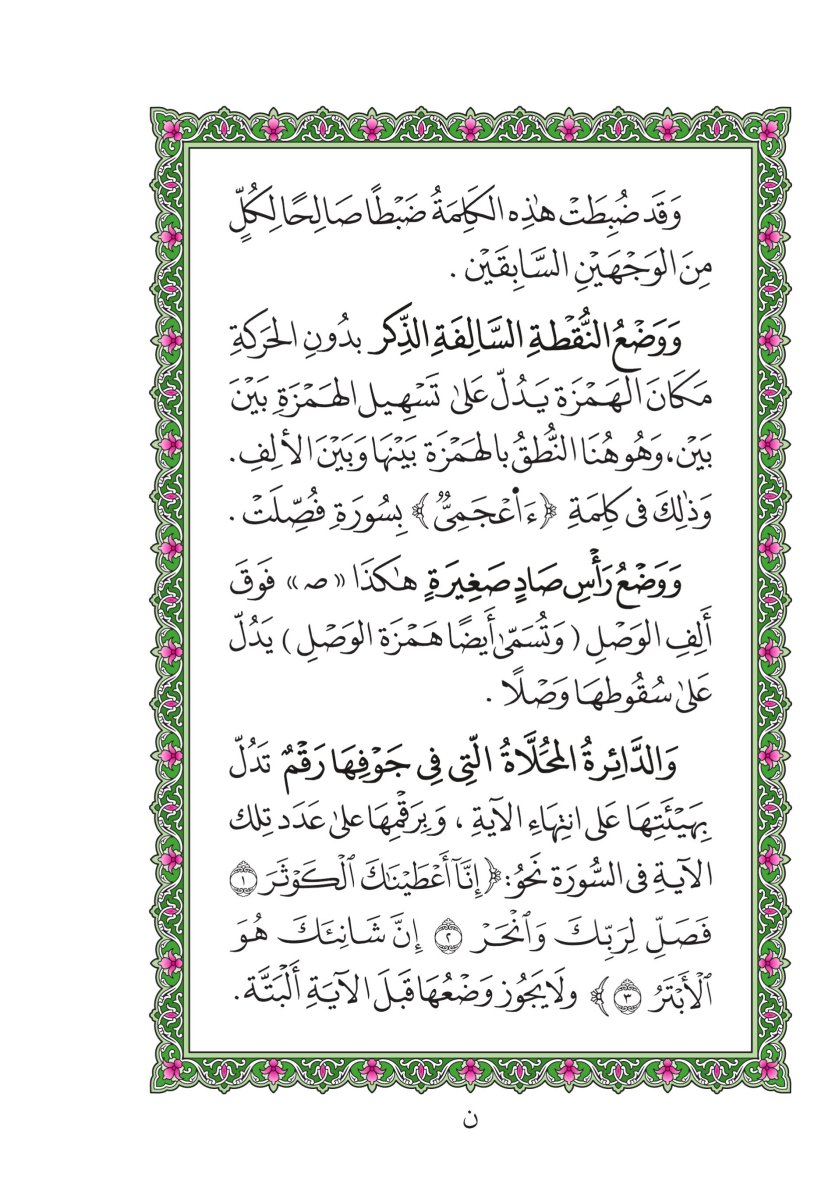 وَقَد ضُبِطَتْ هٰذِه الكَلِمَةُ ضَبْطًا صَالِحًا لِكُلٍّ
مِنَ الوَجْهَيْنِ السَّابِقَيْن .
وَوَضْعُ النُّقْطَةِ السَّالِفَةِ الذِّكر بدُونِ الحَرَكةِ
مَكَانَ الهَمْزَة يَدُلّ عَلىٰ تَسْهِيل الهَمْزَةِ بَيْنَ
بَيْن، وَهُو هُنَا النُّطقُ بالهَمْزَة بَيْنهَا وَبَيْنَ الألِفِ .
وَذٰلِكَ فى كلِمَةِ ﴿ءَا۬عْجَمِىٌّ﴾ بِسُورَةِ فُصِّلَتْ .
وَوَضْعُ رَأْسِ صَادٍ صَغِيرَةٍ هٰكَذَا «صـ» فَوقَ
أَلِفِ الوَصْلِ (وَتُسَمّىٰ أَيضًا هَمْزَة الوَصْلِ) يَدُلّ
عَلىٰ سُقُوطهَا وَصْلًا .
وَالدَّائِرةُ المُحَلَّاةُ الّتِى فِى جَوْفِهَا رَقْمٌ تَدُلّ
بِهَيْئَتِهَا عَلى انتِهَاءِ الآيَةِ ، وَبِرَقْمِهَا عَلىٰ عَدَد تِلك
الآيَةِ فى السُّورَة نَحوُ: ﴿إِنَّآ أَعْطَيْنَٰكَ ٱلْكَوْثَرَ ١
فَصَلِّ لِرَبِّكَ وَٱنْحَرْ ٢ إِنَّ شَانِئَكَ هُوَ
ٱلْأَبْتَرُ ٣﴾ ولَا يَجُوز وَضْعُهَا قَبلَ الآيَةِ أَلْبَتَّة .
ن